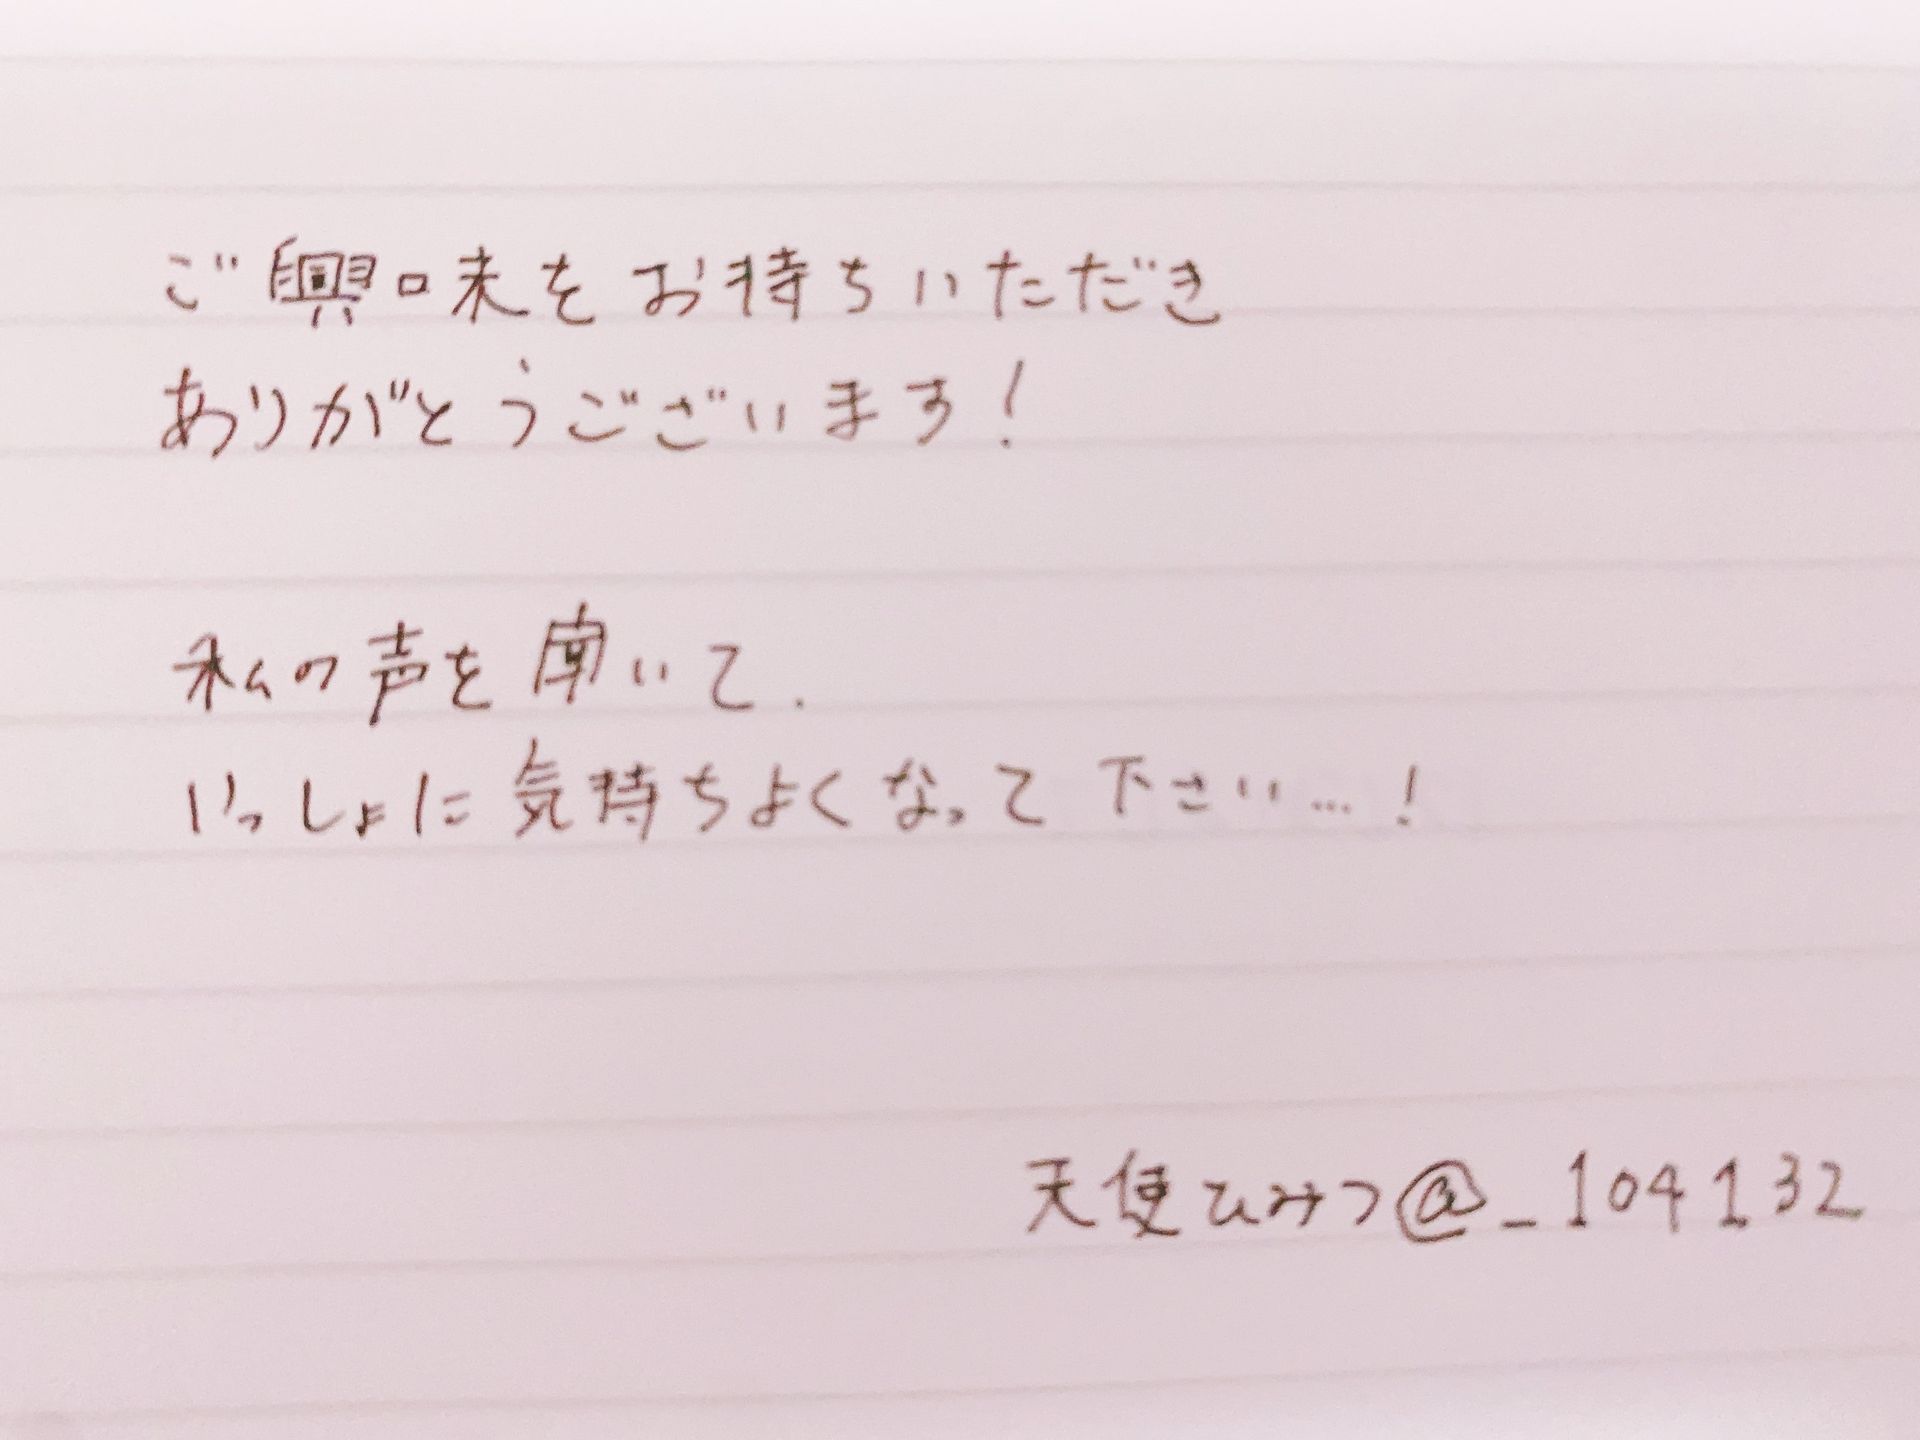 ご興味をお持ちいただき
ありがとうございます!
私の声を聞いて、
いっしょに気持ちよくなって下さい…!
天使ひみつ@_104132